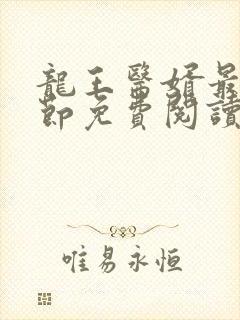 龍王醫婿最
節免費閱讀
唯易永恒